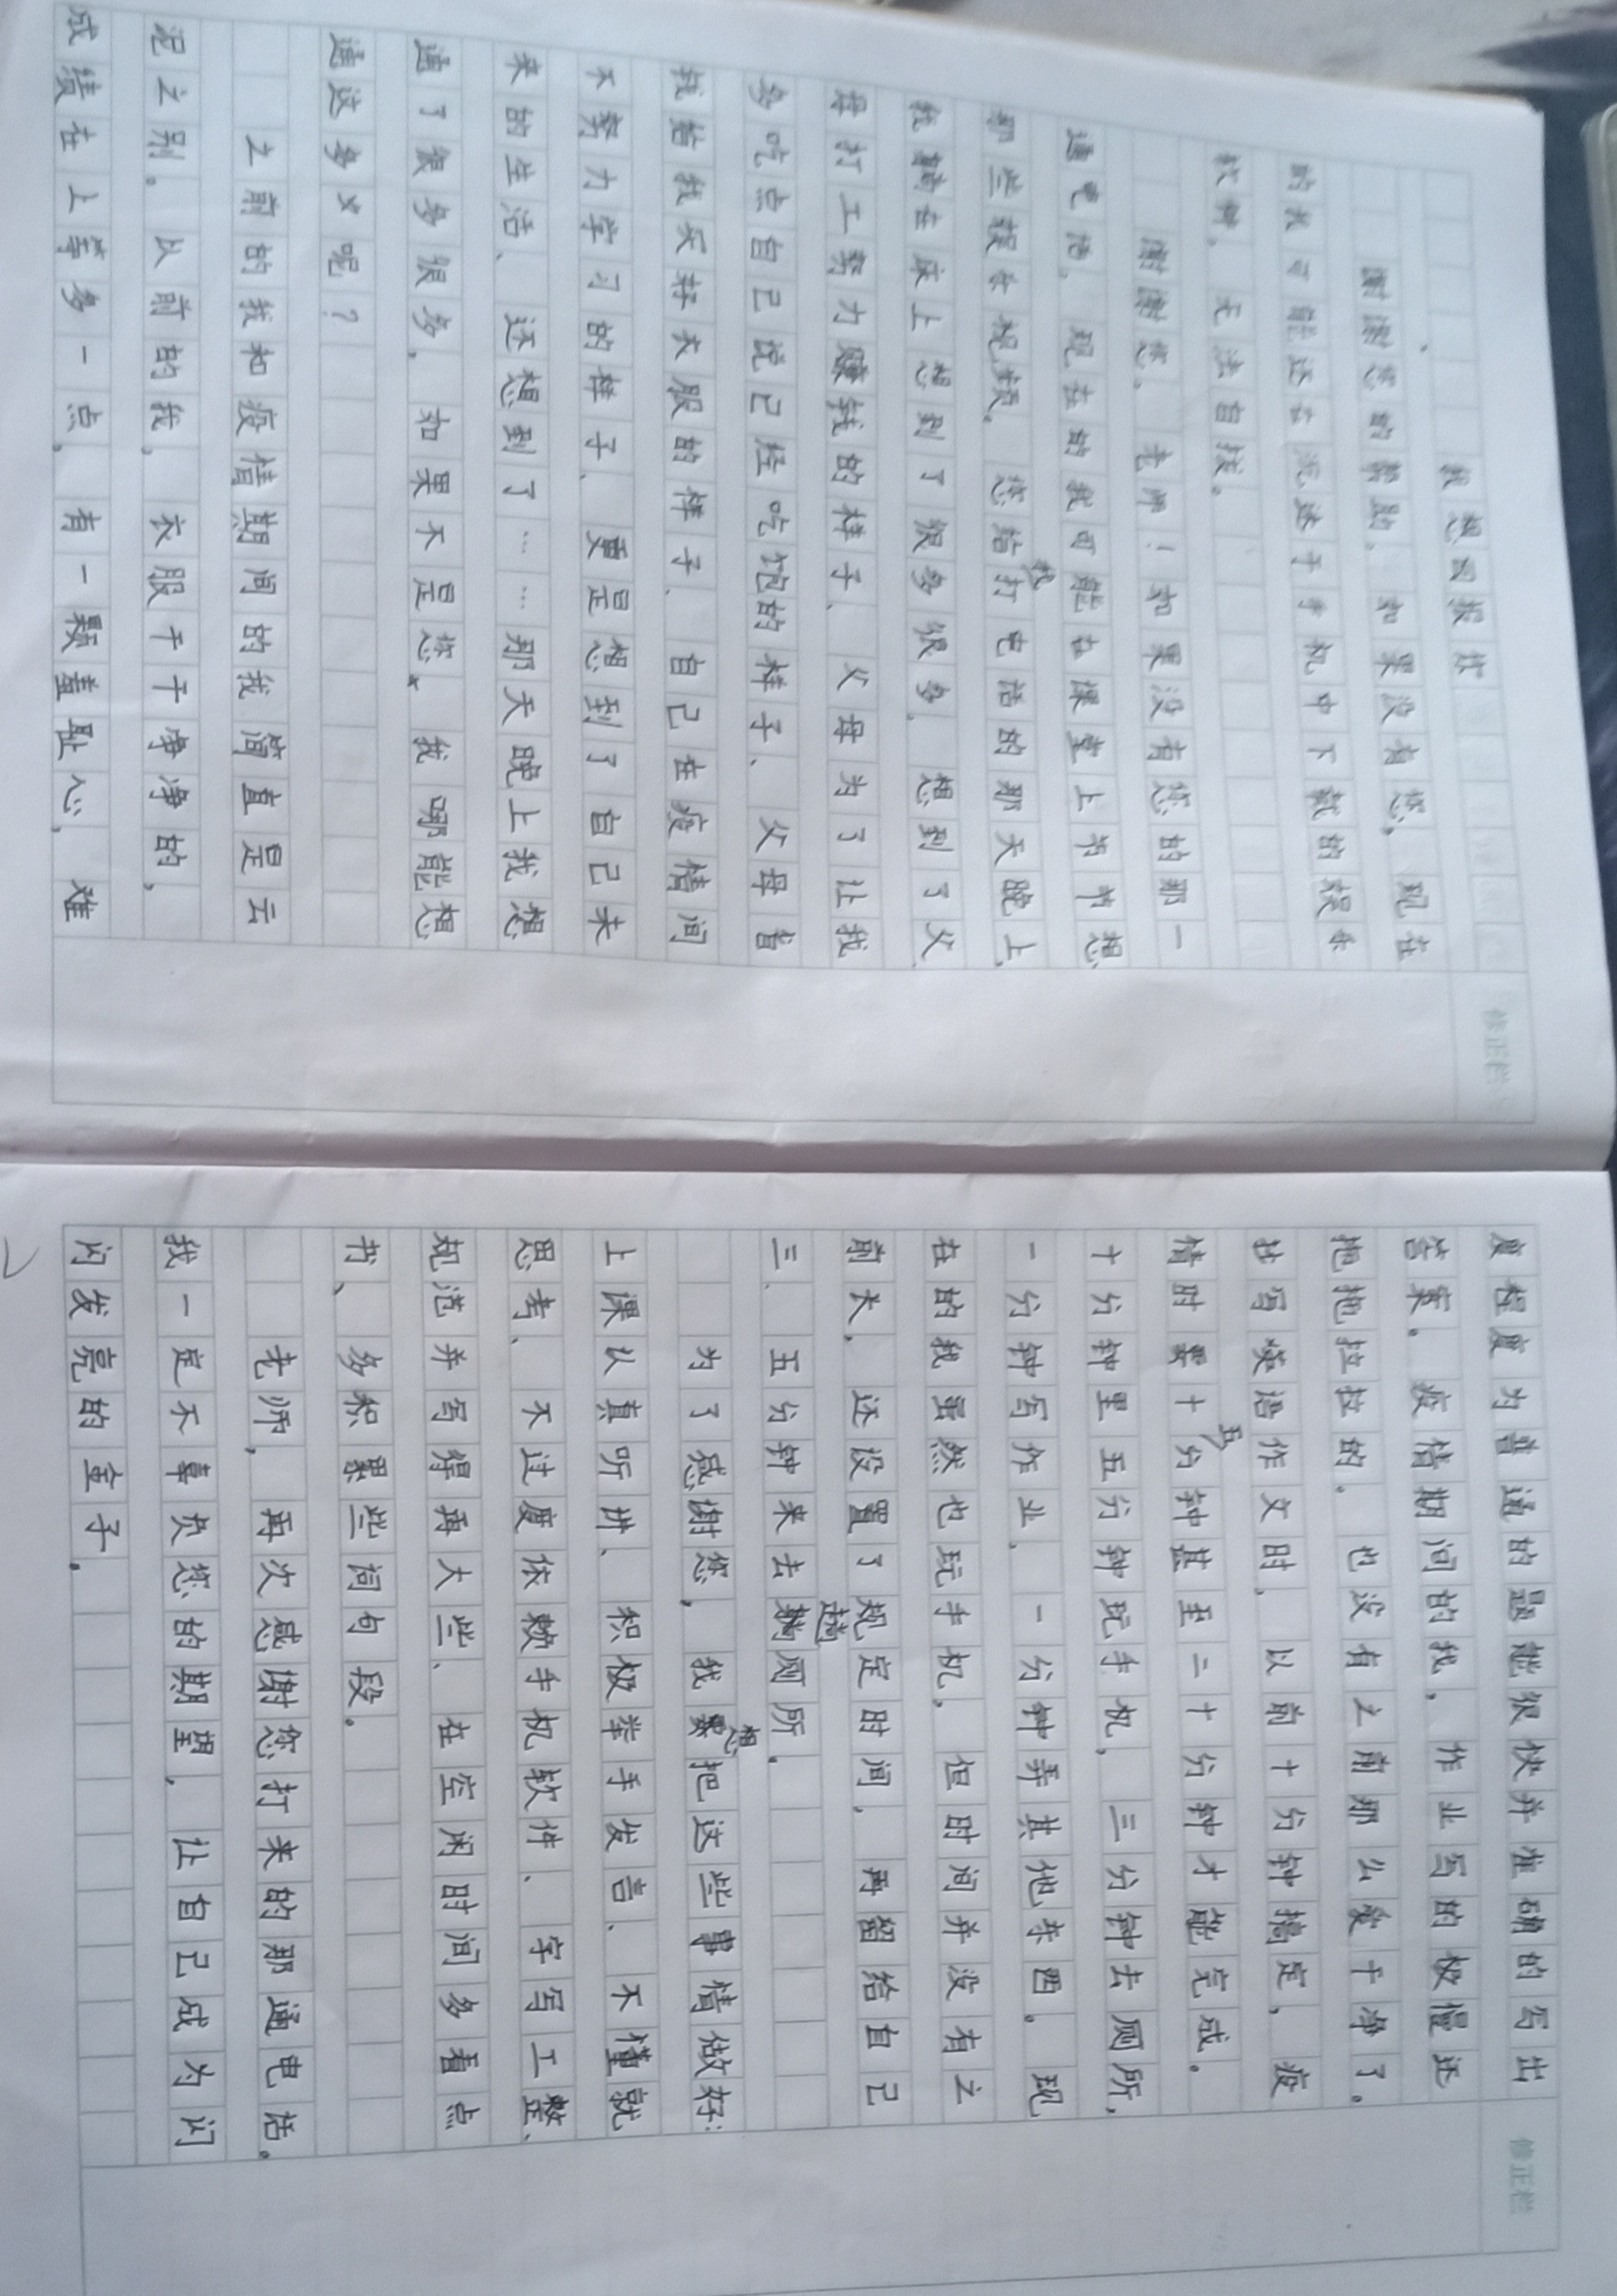 我想回报您
谢谢您的帮助，如果没有您，现在
的我可能还在沉迷于手机中下载的娱乐
软件，无法自拔。
谢谢您，老师！如果没有您的那一
通电话，现在的我可能在课堂上书书想
那些娱乐视频。您给我打电话的那天晚上，
我躺在床上想到了很多很多。想到了父
母打工努力赚钱的样子、父母为了让我
多吃点自己说己经吃饱的样子、父母省
钱给我买好衣服的样子、自己在疫情间
不努力学习的样子、更是想到了自己未
来的生活、还想到了……那天晚上我想
通了很多很多，如果不是您，我哪能想
通这多义呢？
之前的我和疫情期间的我简直是云
泥之别。从前的我，衣服干干净净的，
成绩在上等多一点，有一颗羞耻心，难
度程度为普通的题能很快并准确的写出
答案。疫情期间的我，作业写的极慢还
拖拖拉拉的。也没有之前那么爱干净了。
抄写英语作文时，以前十分钟搞定，疫
情时要十五分钟甚至二十分钟才能完成。
十分钟里五分钟玩手机，三分钟去厕所，
一分钟写作业，一分钟弄其他东西。现
在的我虽然也玩手机。但时间并没有之
前大，还设置了规定时间，再留给自己
三、五分钟来去趟厕所。
为了感谢您，我想把这些事情做好：
上课认真听讲、积极举手发言、不懂就
思考、不过度依赖手机软件、字写工整、
规范并写得再大些、在空闲时间多看点
书、多积累些词句段。
老师，再次感谢您打来的那通电话。
我一定不辜负您的期望，让自己成为闪
闪发亮的金子。
修正栏
修正栏